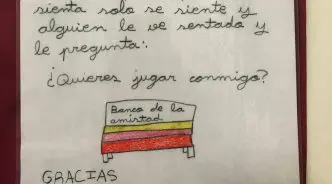 sienta solo se siente y
alguien le ve sentado y
le pregunta:
¿Quieres jugar conmigo?
Banco de la
amistad
GRACIAS